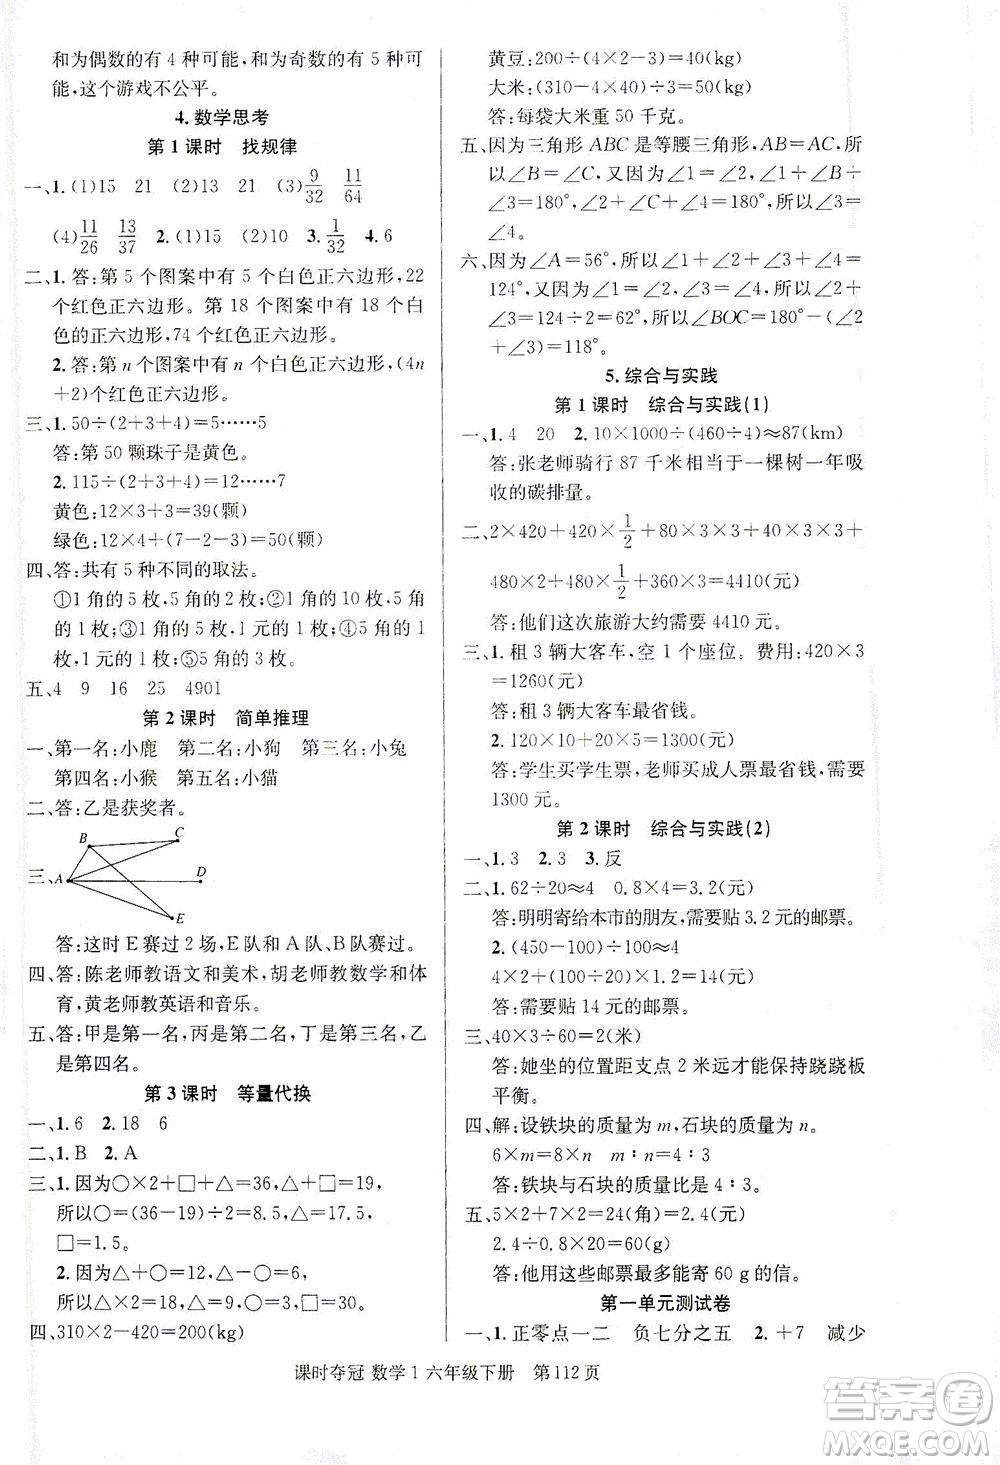 和为偶数的有 4 种可能,和为奇数的有 5 种可
能,这个游戏不公平。
4.数学思考
第 1 课时 找规律
一、1.(1)15 21 (2)13 21 (3)9/32 11/64
(4)11/26 13/37 2.(1)15 (2)10 3.1/32 4.6
二、1.答:第 5 个图案中有 5 个白色正六边形,22
个红色正六边形。第 18 个图案中有 18 个白
色的正六边形,74 个红色正六边形。
2.答:第 n 个图案中有 n 个白色正六边形,(4n
+2)个红色正六边形。
三、1.50÷(2+3+4)=5……5
答:第 50 颗珠子是黄色。
2.115÷(2+3+4)=12……7
黄色:12×3+3=39(颗)
绿色:12×4+(7-2-3)=50(颗)
四、答:共有 5 种不同的取法。
①1 角的 5 枚,5 角的 2 枚;②1 角的 10 枚,5 角
的 1 枚;③1 角的 5 枚,1 元的 1 枚;④5 角的 1
枚,1 元的 1 枚;⑤5 角的 3 枚。
五、4 9 16 25 4901
第 2 课时 简单推理
一、第一名:小鹿 第二名:小狗 第三名:小兔
第四名:小猴 第五名:小猫
二、答:乙是获奖者。
三、
B C
A D
E
答:这时 E 赛过 2 场,E 队和 A 队、B 队赛过。
四、答:陈老师教语文和美术,胡老师教数学和体
育,黄老师教英语和音乐。
五、答:甲是第一名,丙是第二名,丁是第三名,乙
是第四名。
第 3 课时 等量代换
一、1.6 2.18 6
二、1.B 2.A
三、1.因为○×2+□+△=36,△+□=19,
所以○=(36-19)÷2=8.5,△=17.5,
□=1.5。
2.因为△+○=12,△-○=6,
所以△×2=18,△=9,○=3,□=30。
四、310×2-420=200(kg)
黄豆:200÷(4×2-3)=40(kg)
大米:(310-4×40)÷3=50(kg)
答:每袋大米重 50 千克。
五、因为三角形 ABC 是等腰三角形,AB=AC,所
以∠B=∠C。因为∠1=∠2,∠1+∠B+
∠3=180°,∠2+∠C+∠4=180°,所以∠3=
∠4。
六、因为∠A=56°,所以∠1+∠2+∠3+∠4=
124°,又因为∠1=∠2,∠3=∠4,所以∠2+
∠3=124÷2=62°,所以∠BOC=180°-(∠2
+∠3)=118°。
5.综合与实践
第 1 课时 综合与实践(1)
一、1.4 20 2.10×1000÷(460÷4)≈87(km)
答:张老师骑行 87 千米相当于一棵树一年吸
收的碳排量。
二、2×420+420×1/2+80×3×3+40×3×3+
480×2+480×1/2+360×3=4410(元)
答:他们这次旅游大约要用 4410 元。
三、1.租 3 辆大客车,空 1 个座位。费用:420×3
=1260(元)
答:租 3 辆大客车最省钱。
2.120×10+20×5=1300(元)
答:学生买学生票,老师买成人票最省钱,需要
1300 元。
第 2 课时 综合与实践(2)
一、1.3 2.3 3.反
二、1.62÷20≈4 0.8×4=3.2(元)
答:明明寄给本市的朋友,需要贴 3.2 元的邮票。
2.(450-100)÷100≈4
4×2+1.2×(100÷20)=14(元)
答:需要贴 14 元的邮票。
三、40×3÷60=2(米)
答:她坐的位置距支点 2 米远才能保持跷跷板
平衡。
四、解:设铁块的质量为 m,石块的质量为 n。
6×m=8×n m∶n=4∶3
答:铁块与石块的质量比是 4∶3。
五、5×2+7×2=24(角)=2.4(元)
2.4÷0.8×20=60(g)
答:他用这些邮票最多能寄 60 g的信。
第一单元测试卷
一、1.正零点一二 负七分之五 2.+7 减少
课时夺冠 数学 1 六年级下册 第 112 页
答案圈
MXQE.COM